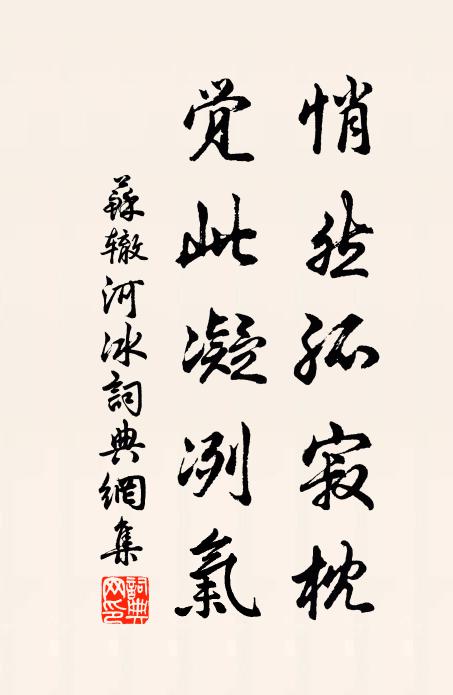 悄然孤寂枕
覚此凝冽氣
蘇辙河冰詞典網集
詞典网印